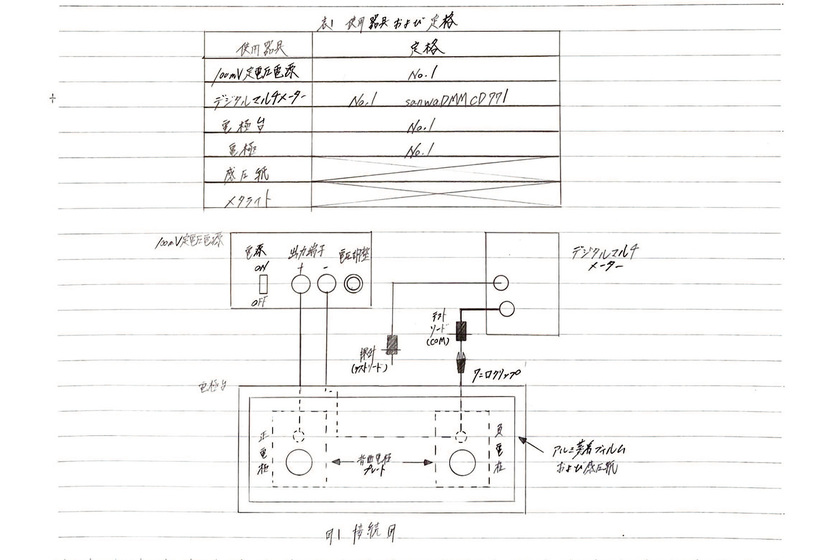 表1 使用器具および定格
使用器具 定格
100mV定電圧電源 No.1
デジタルマルチメーター No.1 sanwaDMMCD771
電極台 No.1
電極 No.1
感圧紙
メタライト
100mV定電圧電源
電源
ON
OFF
出力端子
+ -
電圧調整
デジタルマルチ
メーター
テスト
リード
(COM)
探針
(テストリード)
ワニ口クリップ
電極台
正電極
負電極
電極
プレート
アルミ蒸着フィルム
および感圧紙
図1 接続図